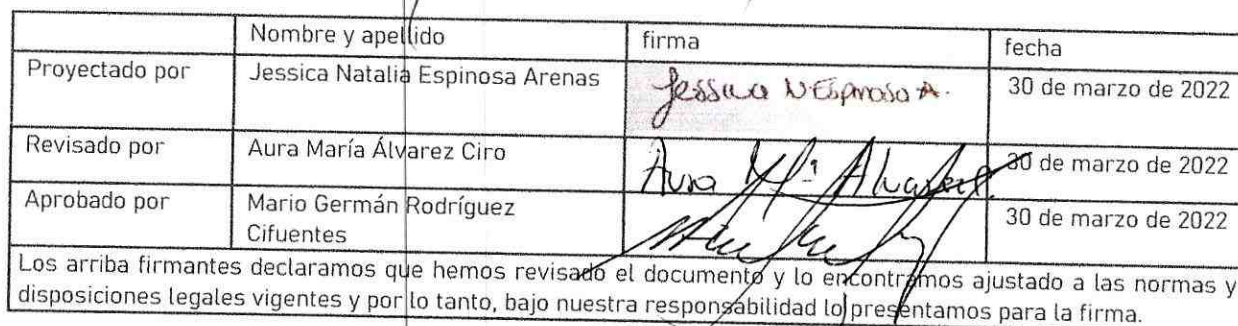 Nombre y apellido firma fecha
Proyectado por Jessica Natalia Espinosa Arenas Jessica N Espinosa A. 30 de marzo de 2022
Revisado por Aura María Álvarez Ciro Aura Mª Alvarez C. 30 de marzo de 2022
Aprobado por Mario Germán Rodríguez 30 de marzo de 2022
Cifuentes
Los arriba firmantes declaramos que hemos revisado el documento y lo encontramos ajustado a las normas y
disposiciones legales vigentes y por lo tanto, bajo nuestra responsabilidad lo presentamos para la firma.